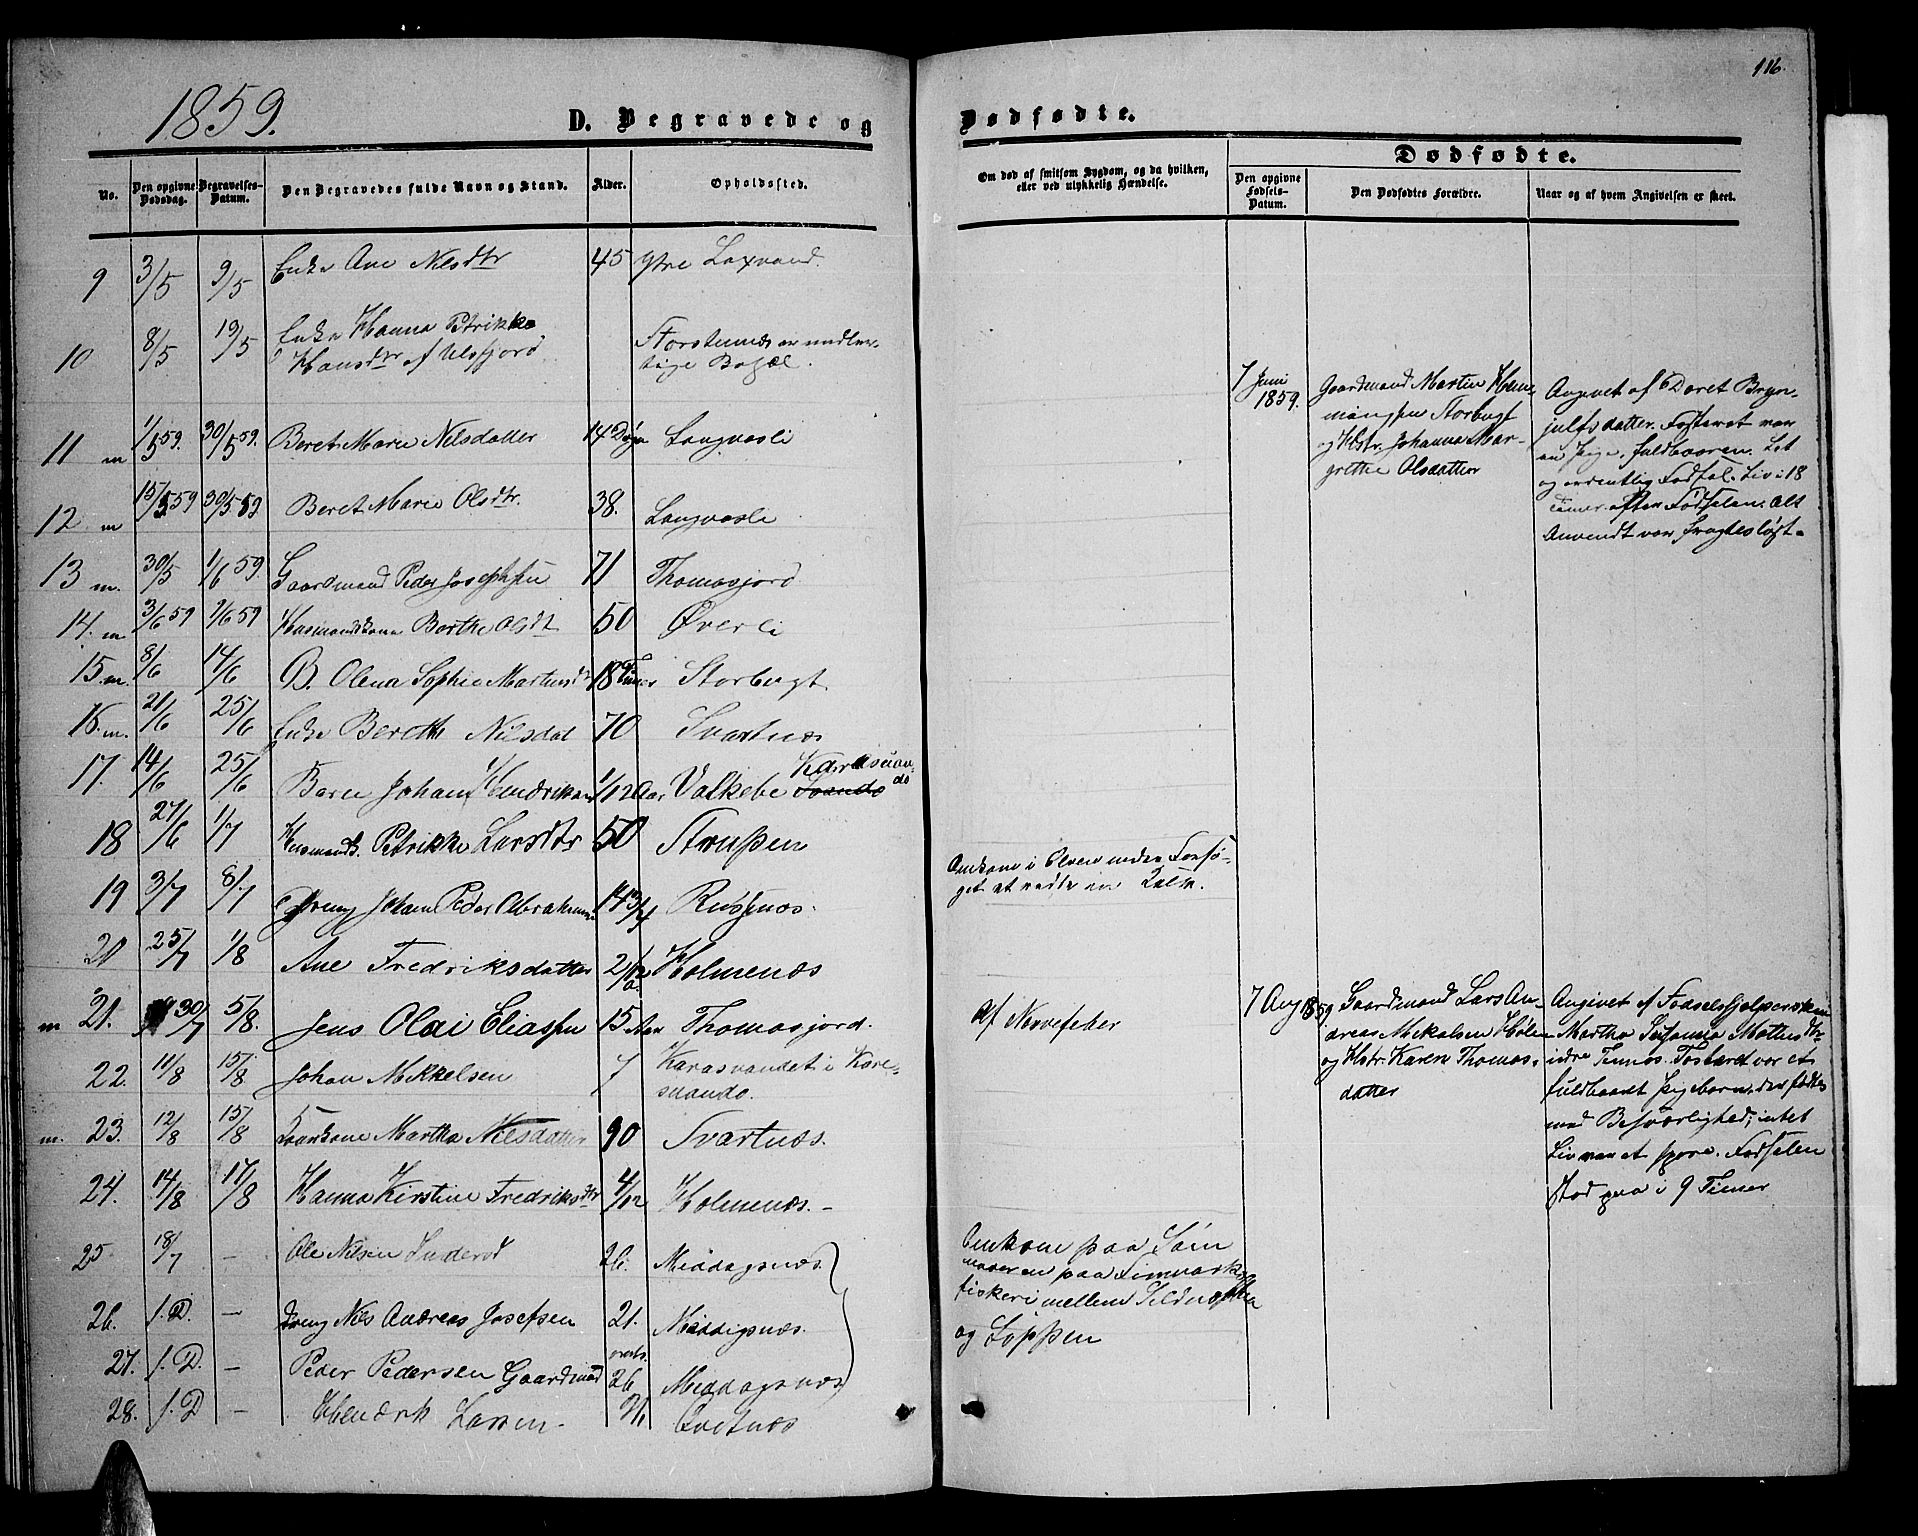 116.
1859.
D. Begravede og
Dødfødte.
No.
Den opgivne Dødsdag.
Begravelses-Datum.
Den Begravedes fulde Navn og Stand.
Alder.
Opholdssted.
Om død af smitsom Sygdom, og da hvilken,
eller ved ulykkelig Hændelse.
Dødfødte.
Den opgivne Fødsels-Datum.
Den Dødfødtes Forældre.
Naar og af hvem Angivelsen er skeet.
9 3/5 9/5 Enke Ane Nilsdtr 45 Ytre Laxvand.
10 8/5 19/5 Enke Hanna Petrikke
Hansdtr af Ulsfjord
Storstennes
11 m 1/5 59. 30/5 59. Beret Marie Nilsdatter 14 Døgn Langvasli
12 m 15/5 59 30/5 59 Beret Marie Olsdtr. 38. Langvasli
13 m. 30/5 1/6 59. Gaardmand Peder Josephsen 71 Thomasjord
14. m 3/6 59 /6 59 Husmandskone Berthe Olsdt 50 Øverli
15. m. 8/6 14/6 B. Olena Sophie Martinsdt 18 Timer Storbugt
16. m. 21/6 25/6 Enke Berethe Nilsdat 70 Svartnæs
17. 14/6 25/6 Barn Johan Hendriksen 1/12 Aar Valkebe Karesuan-
do
18 27/6 1/7 Husmandsk. Petrikke Larsdtr 50 Strupen
19 3/7 8/7 Dreng Johan Peder Abrahamsen 14 3/4 Russnæs.
20 25/7 1/8 Ane Fredriksdatter 2/12 a. Holmenæs
m 21. 30/7 5/8. Jens Olai Eliassen 15 Aar Thomasjord.
22. 11/8 15/8 Johan Mikkelsen 7 Karasvandet i Kare-
suando.
m. 23. 12/8 15/8 Kaarkone Martha Nilsdatter 90 Svartnæs.
24. 14/8 17/8 Hanna Kirstine Fredriksdtr 4/12 Holmenæs.-
25 18/7 - Ole Nilsen 26. Middagsnæs
26. s. D. - Dreng Nils Andreas Josefsen 21. Middagsnæs.
27. s. D. - Peder Pedersen Gaardmand 26 Middagsnæs
28. s. D - Hendrik Larsen Qvitnæs
Omkom i Elven under Forsø-
get at vadte en
af Nervefeber
Omkom paa Søm
paa Finmarks
fiskeri mellem
og Loppen
7 Juni
1859.
Gaardmand Martin Hem-
mingsen Storbugt
og Hstr. Johanna Mar-
grethe Olsdatter
Angivet af Doret Bryn-
julfsdatter. Fosteret var
en Pige, fuldbaaren. Let
og ordentlig Fødsel. Liv i 18
Timer efter Fødselen. Alt
Anvendt var frugtesløst.
7 Aug 1859.
Gaardmand Lars An-
dreas Mikalsen
og Hstr. Karen Thomas-
datter
Angivet af Fødselshjelpersken
Martha Susanna Mathis dtr
Fosteret var et
fuldbaaret Pigebarn, der fødtes
med Besværlighed; intet
Liv var at spore. Fødselen
stod paa i 9 Timer